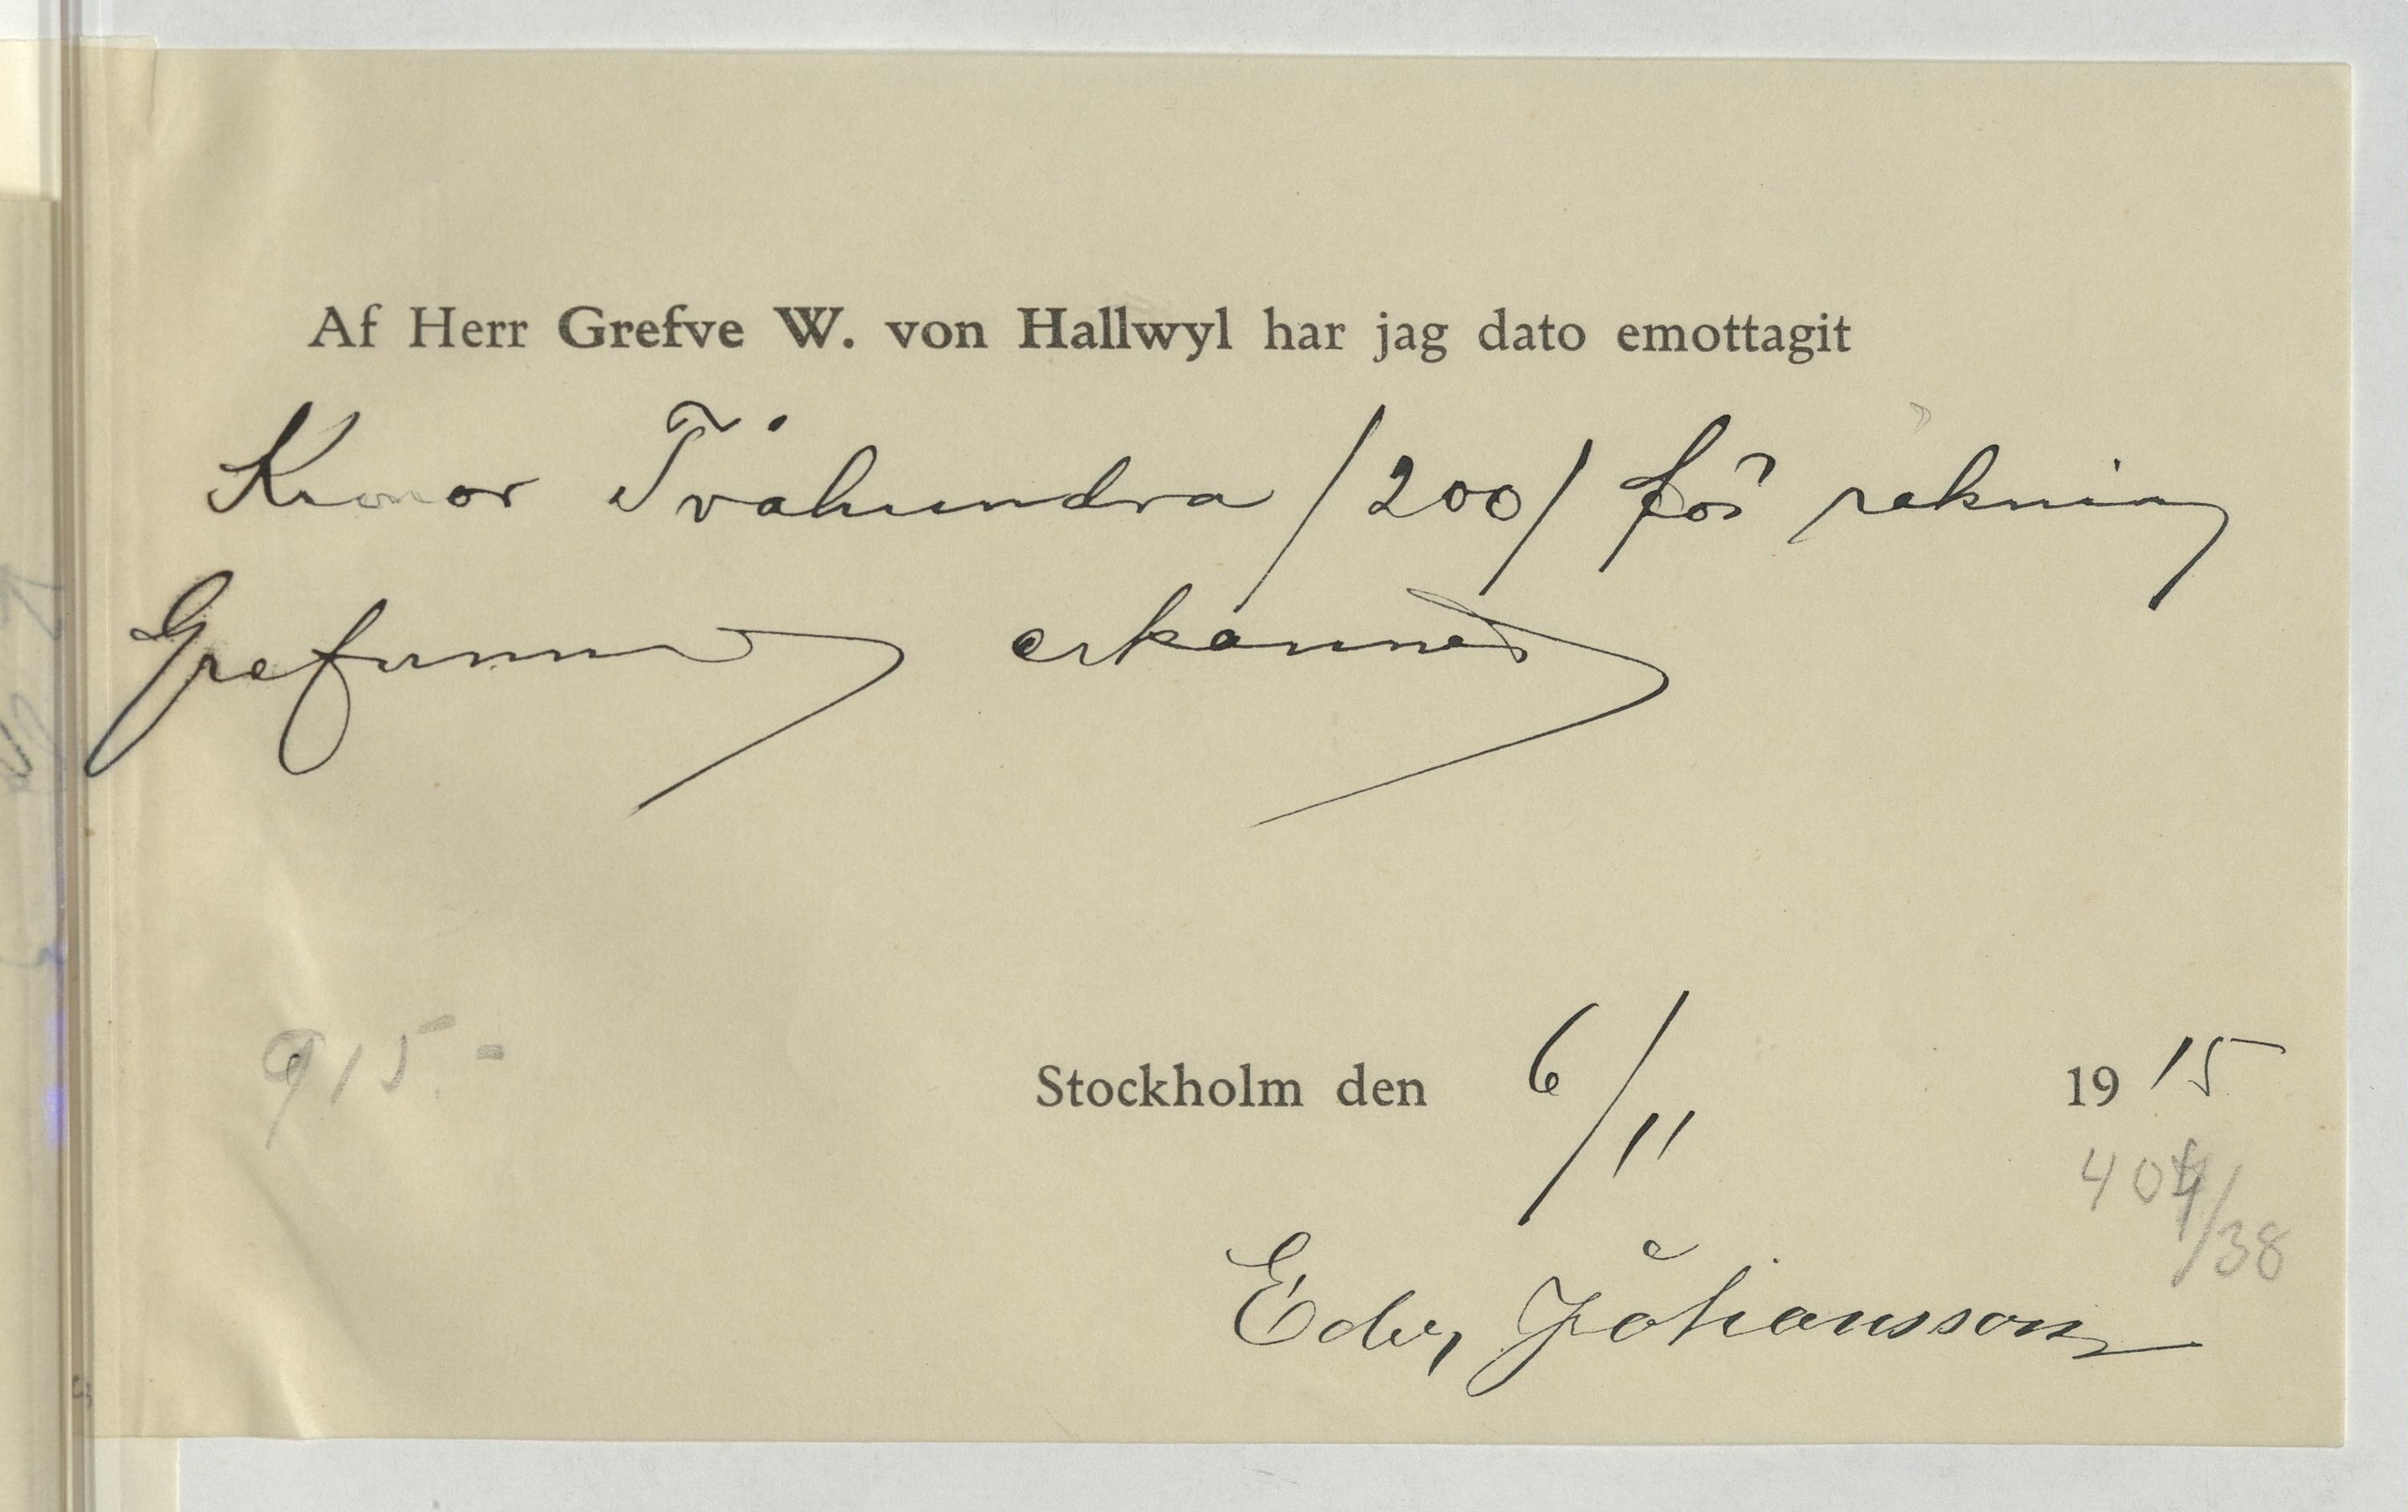 Af Herr Grefve W. von Hallwyl har jag dato emottagit
Kronor Tvåhundra /200/ för räkning
Grefvinnan erkännes
915 -
Stockholm den 6/11 1915
404/38
Edv, Johansson